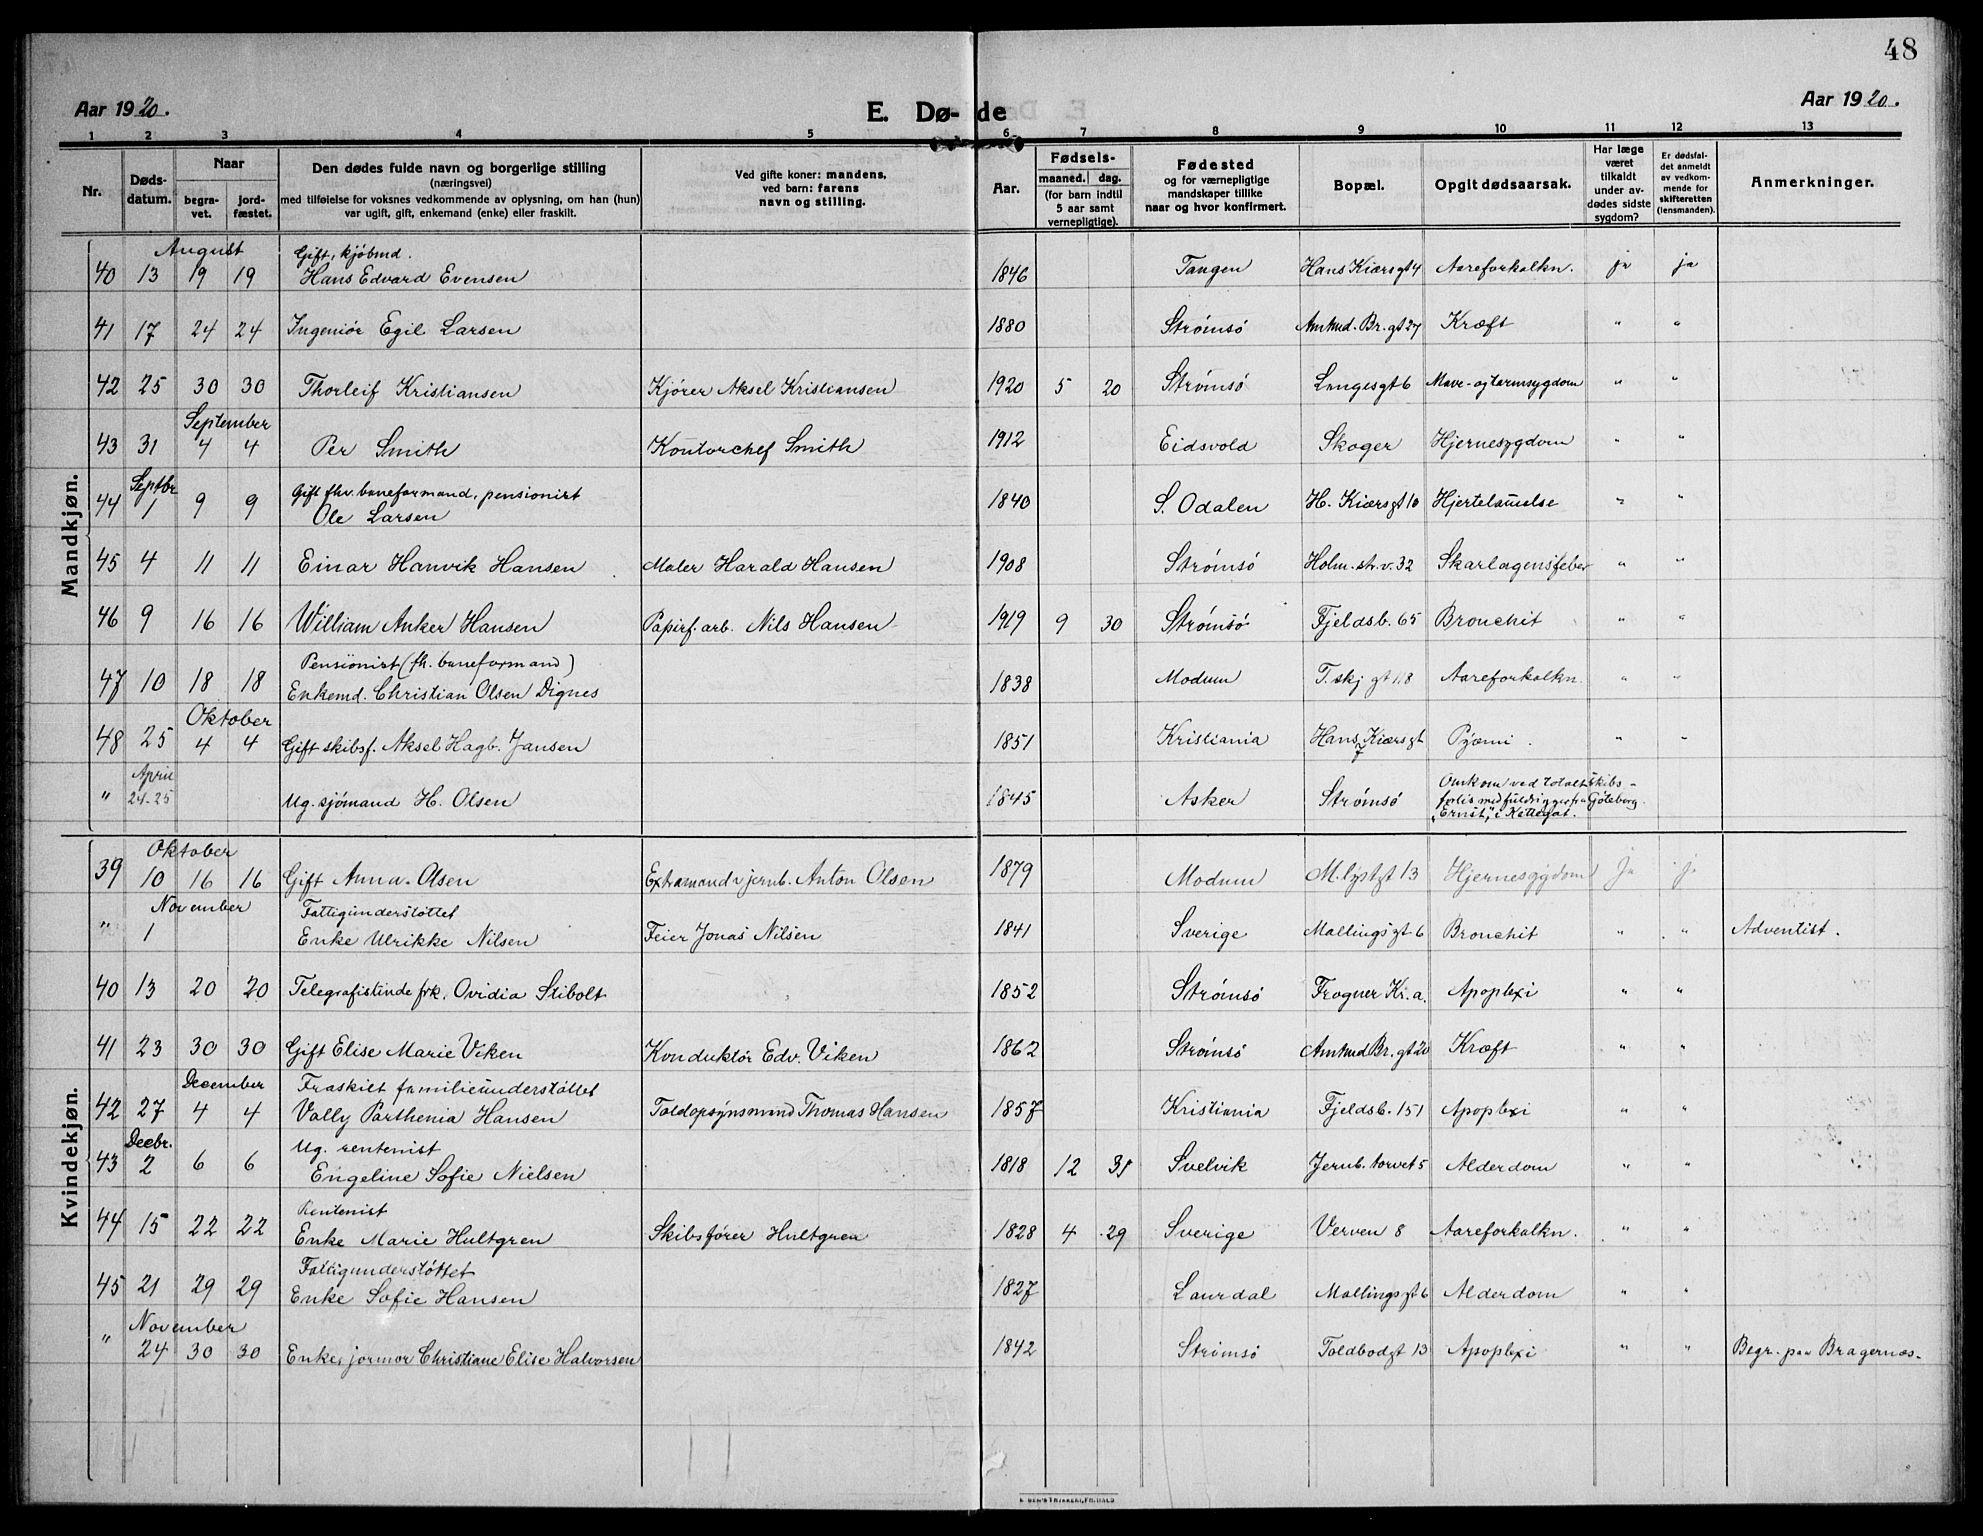 48
Aar 1920.
E. Dø-de
Aar 1920.
1 2 3 4 5 6 7 8 9 10 11 12 13
Nr.
Døds-
datum.
Naar
begra-
vet.
jord-
fæstet.
Den dødes fulde navn og borgerlige stilling
(næringsvei)
med tilføielse for voksnes vedkommende av oplysning, om han (hun)
var ugift, gift, enkemand (enke) eller fraskilt.
Ved gifte koner: mandens,
ved barn: farens
navn og stilling.
Aar.
Fødsels-
maaned. dag.
(for barn indtil
5 aar samt
vernepligtige).
Fødested
og for værnepligtige
mandskaper tillike
naar og hvor konfirmert.
Bopæl.
Opgit dødsaarsak.
Har læge
været
tilkaldt
under av-
dødes sidste
sygdom?
Er dødsfal-
det anmeldt
av vedkom-
mende for
skifteretten
(lensmanden).
Anmerkninger.
Mandkjøn.
August
Gift, kjøbmd.
40 13 19 19 Hans Edvard Evensen 1846 Tangen Hans Kiærsgt 4 Aareforkalkn. ja ja
41 17 24 24 Ingeniør Egil Larsen 1880 Strømsø Amtmd. Br. gt 27 Kræft " "
42 25 30 30 Thorleif Kristiansen Kjører Aksel Kristiansen 1920 5 20 Strømsø Langesgt 6 Mave- og tarmsygdom " "
September
43 31 4 4 Per Smith Kontorchef Smith 1912 Eidsvold Skoger Hjernesygdom " "
Septbr
Gift fhv. baneformand, pensionist
44 1 9 9 Ole Larsen 1840 S. Odalen H. Kiærsgt 10 Hjertelammelse " "
45 4 11 11 Einar Hanvik Hansen Maler Harald Hansen 1908 Strømsø Holm. str. v. 32 Skarlagensfeber " "
46 9 16 16 William Anker Hansen Papirf. arb. Nils Hansen 1919 9 30 Strømsø Fjeldsb. 65 Bronchit " "
Pensionist (fh. baneformand)
47 10 18 18 Enkemd. Christian Olsen Dignes 1838 Modum T. skj gt 118 Aareforkalkn. " "
Oktober
48 25 4 4 Gift skibsf. Aksel Hagb. Jansen 1851 Kristiania Hans Kiærsgt 7 Pyæmi. " "
April
" 24-25 Ug. sjømand H. Olsen 1845 Asker Strømsø Omkom ved totalt skibs-
forlis med fuldrigger fra Göteborg.
"Ernst," i Kattegat.
Kvindekjøn.
Oktober
39 10 16 16 Gift Anna Olsen Extramand v jernb. Anton Olsen 1879 Modum M.lystgt 13 Hjernesygdom Ja ja
November
Fattigunderstøttet
" 1 Enke Ulrikke Nilsen Feier Jonas Nilsen 1841 Sverige Mallingsgt 6 Bronchit " " Adventist.
40 13 20 20 Telegrafistinde frk. Ovidia Stibolt 1852 Strømsø Frogner Kr.a. Apoplexi " "
41 23 30 30 Gift Elise Marie Viken Konduktør Edv. Viken 1862 Strømsø Amtmd Br. gt 20 Kræft " "
December
Fraskilt familieunderstøttet
42 27 4 4 Vally Parthenia Hansen Toldopsynsmand Thomas Hansen 1857 Kristiania Fjeldsb. 151 Apoplexi " "
Decbr.
Ug. rentenist
43 2 6 6 Engeline Sofie Nielsen 1818 12 31 Svelvik Jernb. torvet 5 Alderdom " "
Rentenist
44 15 22 22 Enke Marie Hultgren Skibsfører Hultgren 1828 4 29 Sverige Verven 8 Aareforkalkn. " "
Fattigunderstøttet
45 21 29 29 Enke Sofie Hansen 1827 Laurdal Mallingsgt 6 Alderdom " "
November
" 24 30 30 Enke, jormor Christiane Elise Halvorsen 1842 Strømsø Toldbodgt 13 Apoplexi " " Begr. paa Bragernes.